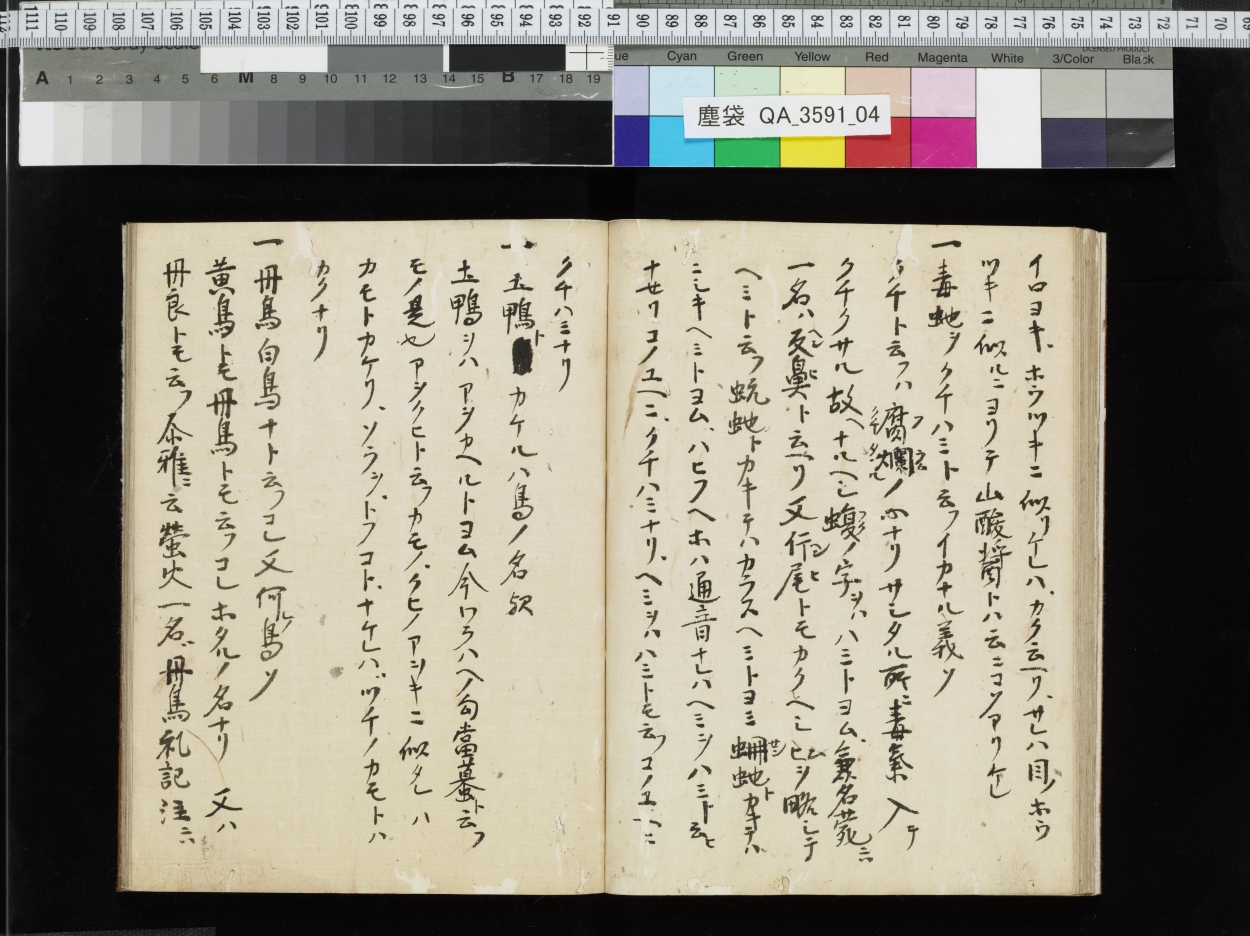 塵袋 QA_3591_04
Cyan Green Yellow Red Magenta White 3/Color Black
A 1 2 3 4 5 6 M 8 9 10 11 12 13 14 15 B 17 18 19
イロヨキホウツキニ似リケレハカク云ヘリサレハ目ノホウ
ツキニ似ルニヨリテ山酸醤トハ云ニコソアリケレ
一毒虵ヲクチハミト云フイカナル義ソ
クチト云フハ腐爛ノ心ナリサシタル所ニ毒氣入テ
クチクサル故ヘナルヘシ蝮ノ字ヲハハミトヨム兼名苑ニ
一名ハ反鼻ト云ヘリ又行尾トモカクヘシヒヲ略シテ
ヘミト云フ蚖虵トカキテハカラスヘミトヨミ蚺虵トカキテハ
ニシキヘミトヨムハヒフヘホハ通音ナレハヘミヲハミト云ヒ
ナセリコノユヘニクチハミナリヘミヲハハミトモ云フコノユヘニ
クチハミナリ
一土鴨トカケルハ鳥ノ名歟
土鴨ヲハアヲカヘルトヨム今ハワラハヘノ勾當蟇ト云フ
モノ是也アシクヒト云フカモノクヒノアヲキニ似タレハ
カモトカケリソラヲトフコトナケレハツチノカモトハ
カクナリ
一丹鳥白鳥ナト云フコレ又何レノ鳥ソ
黄鳥トモ丹鳥トモ云フコレホタルノ名ナリ又ハ
丹良トモ云フ尒雅ニ云螢火一名丹鳥礼記注ニ